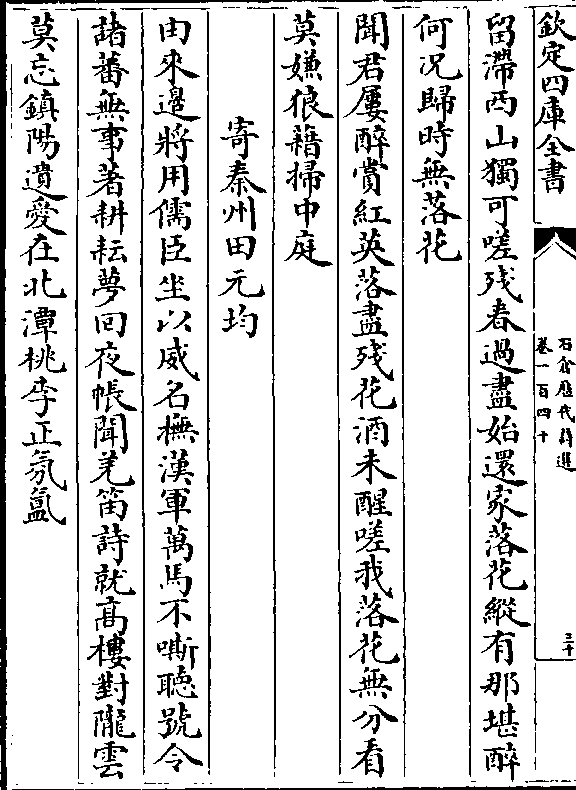 欽定四庫全書
石倉歷代詩選
卷一百四十
三十
留滯西山獨可嗟殘春過盡始還家落花縱有那堪醉
何况歸時無落花
聞君屢醉賞紅英落盡殘花酒未醒嗟我落花無分看
莫嫌狼籍掃中庭
寄秦州田元均
由來邊將用儒臣坐以威名撫漢軍萬馬不嘶聽號令
諸蕃無事著耕耘夢回夜帳聞羌笛詩就高樓對隴雲
莫忘鎮陽遺愛在北潭桃李正氛氲